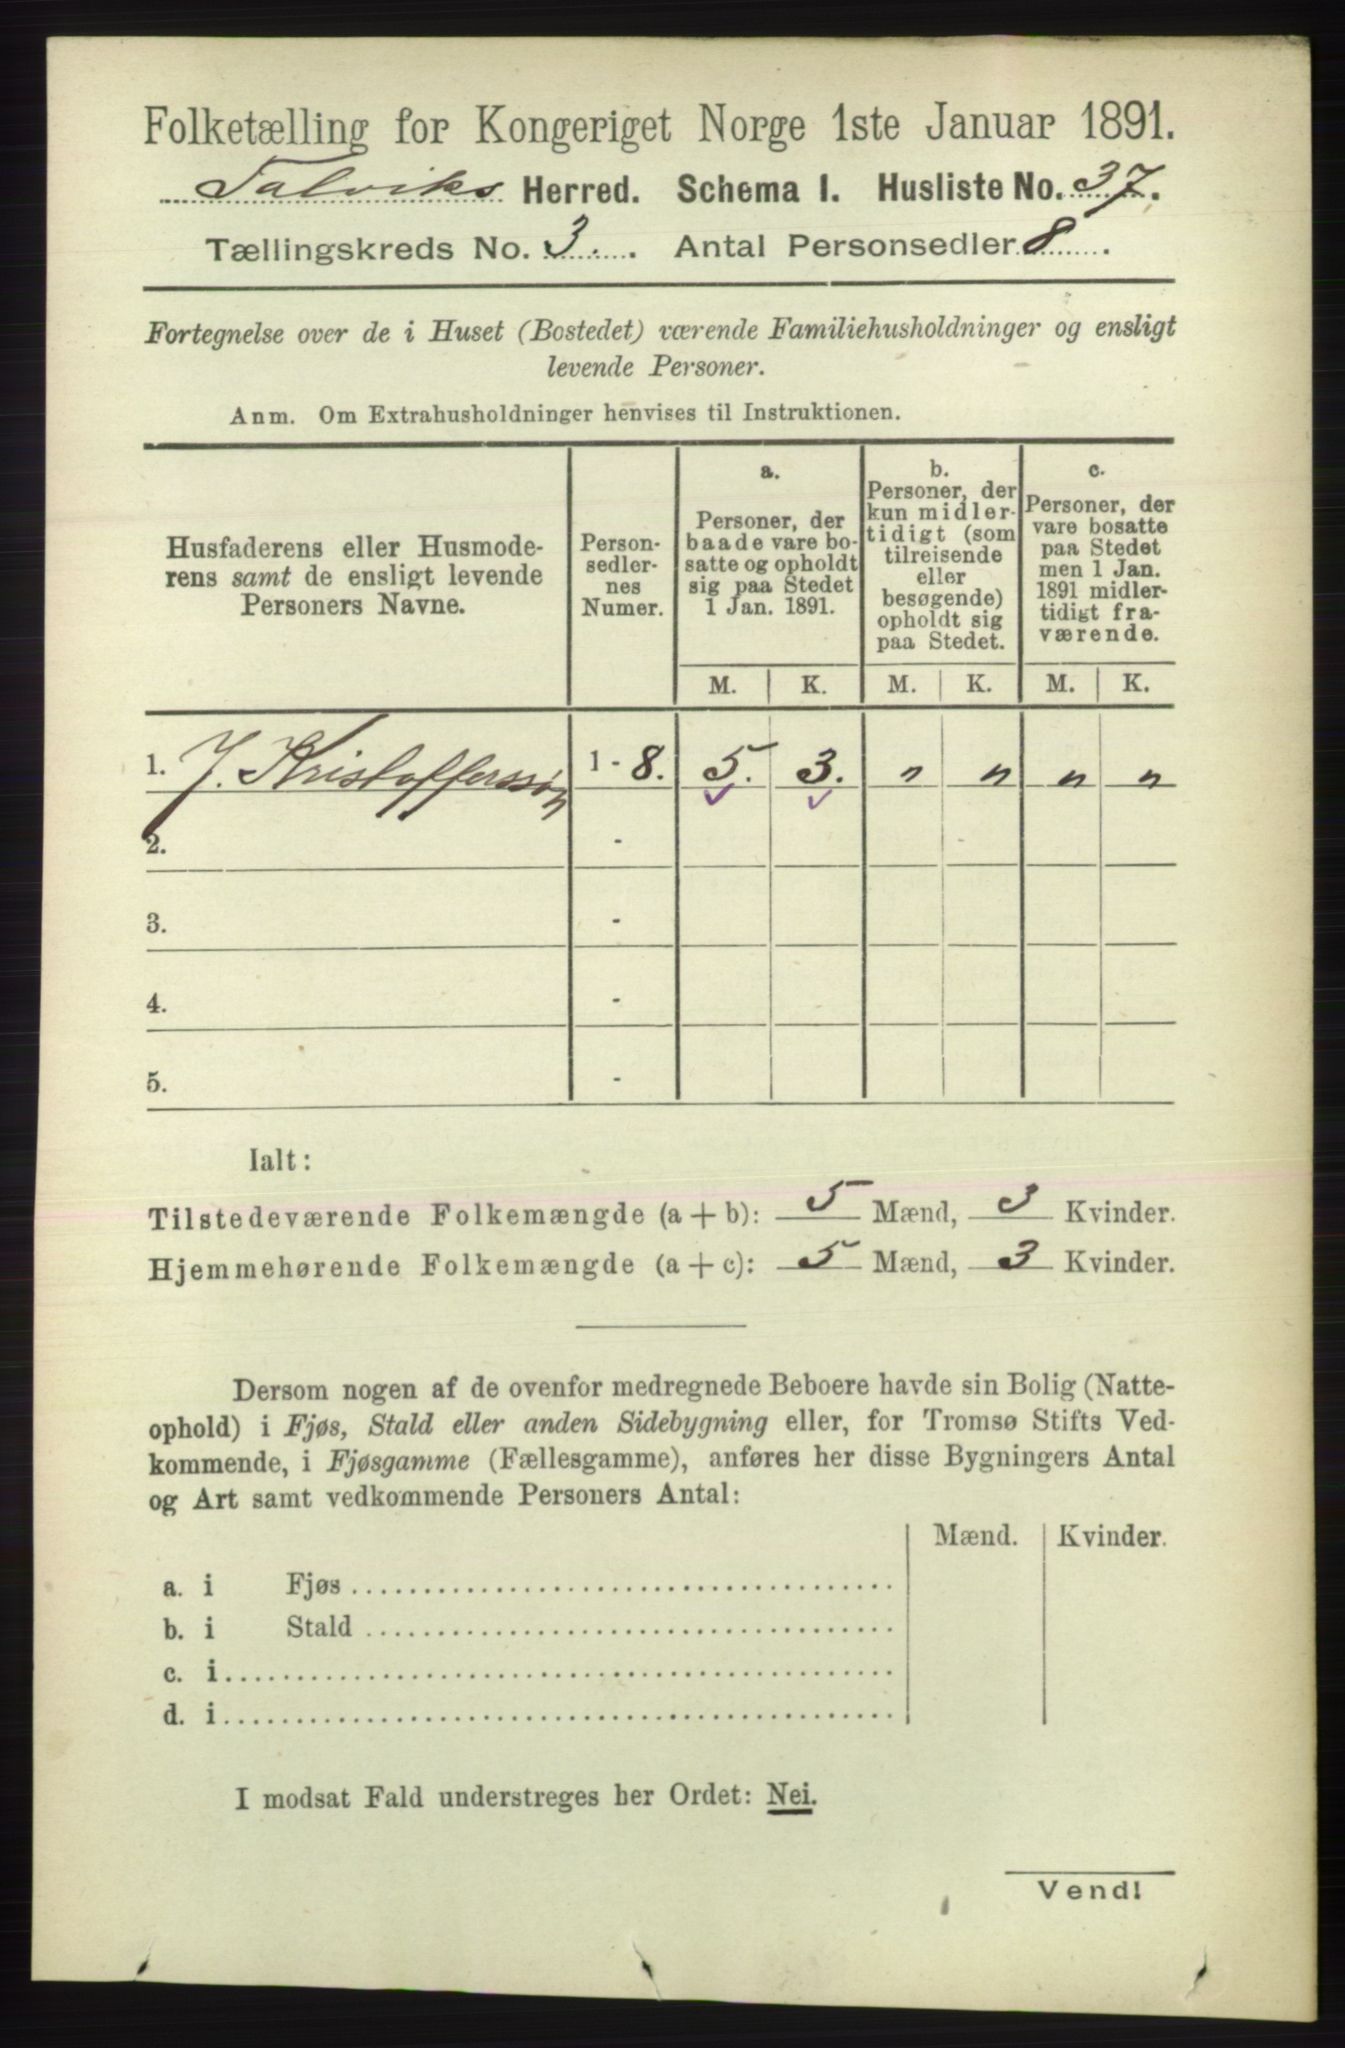 Folketælling for Kongeriget Norge 1ste Januar 1891.
Talviks Herred. Schema I. Husliste No. 37.
Tællingskreds No. 3. Antal Personsedler 8.
Fortegnelse over de i Huset (Bostedet) værende Familiehusholdninger og ensligt
levende Personer.
Anm. Om Extrahusholdninger henvises til Instruktionen.
Husfaderens eller Husmode-
rens samt de ensligt levende
Personers Navne.
Person-
sedler-
nes
Numer.
a.
Personer, der
baade vare bo-
satte og opholdt
sig paa Stedet
1 Jan. 1891.
b.
Personer, der
kun midler-
tidigt (som
tilreisende
eller
besøgende)
opholdt sig
paa Stedet.
c.
Personer, der
vare bosatte
paa Stedet
men 1 Jan.
1891 midler-
tidigt fra-
værende.
M. K. M. K. M. K.
1. J. Kristofferssøn 1 - 8. 5. 3. " " " "
2. -
3. -
4. -
5. -
Ialt:
Tilstedeværende Folkemængde (a + b): 5 Mænd, 3 Kvinder.
Hjemmehørende Folkemængde (a + c): 5 Mænd, 3 Kvinder.
Dersom nogen af de ovenfor medregnede Beboere havde sin Bolig (Natte-
ophold) i Fjøs, Stald eller anden Sidebygning eller, for Tromsø Stifts Ved-
kommende, i Fjøsgamme (Fællesgamme), anføres her disse Bygningers Antal
og Art samt vedkommende Personers Antal:
Mænd. Kvinder.
a. i Fjøs
b. i Stald
c. i
d. i
I modsat Fald understreges her Ordet: Nei.
Vend!